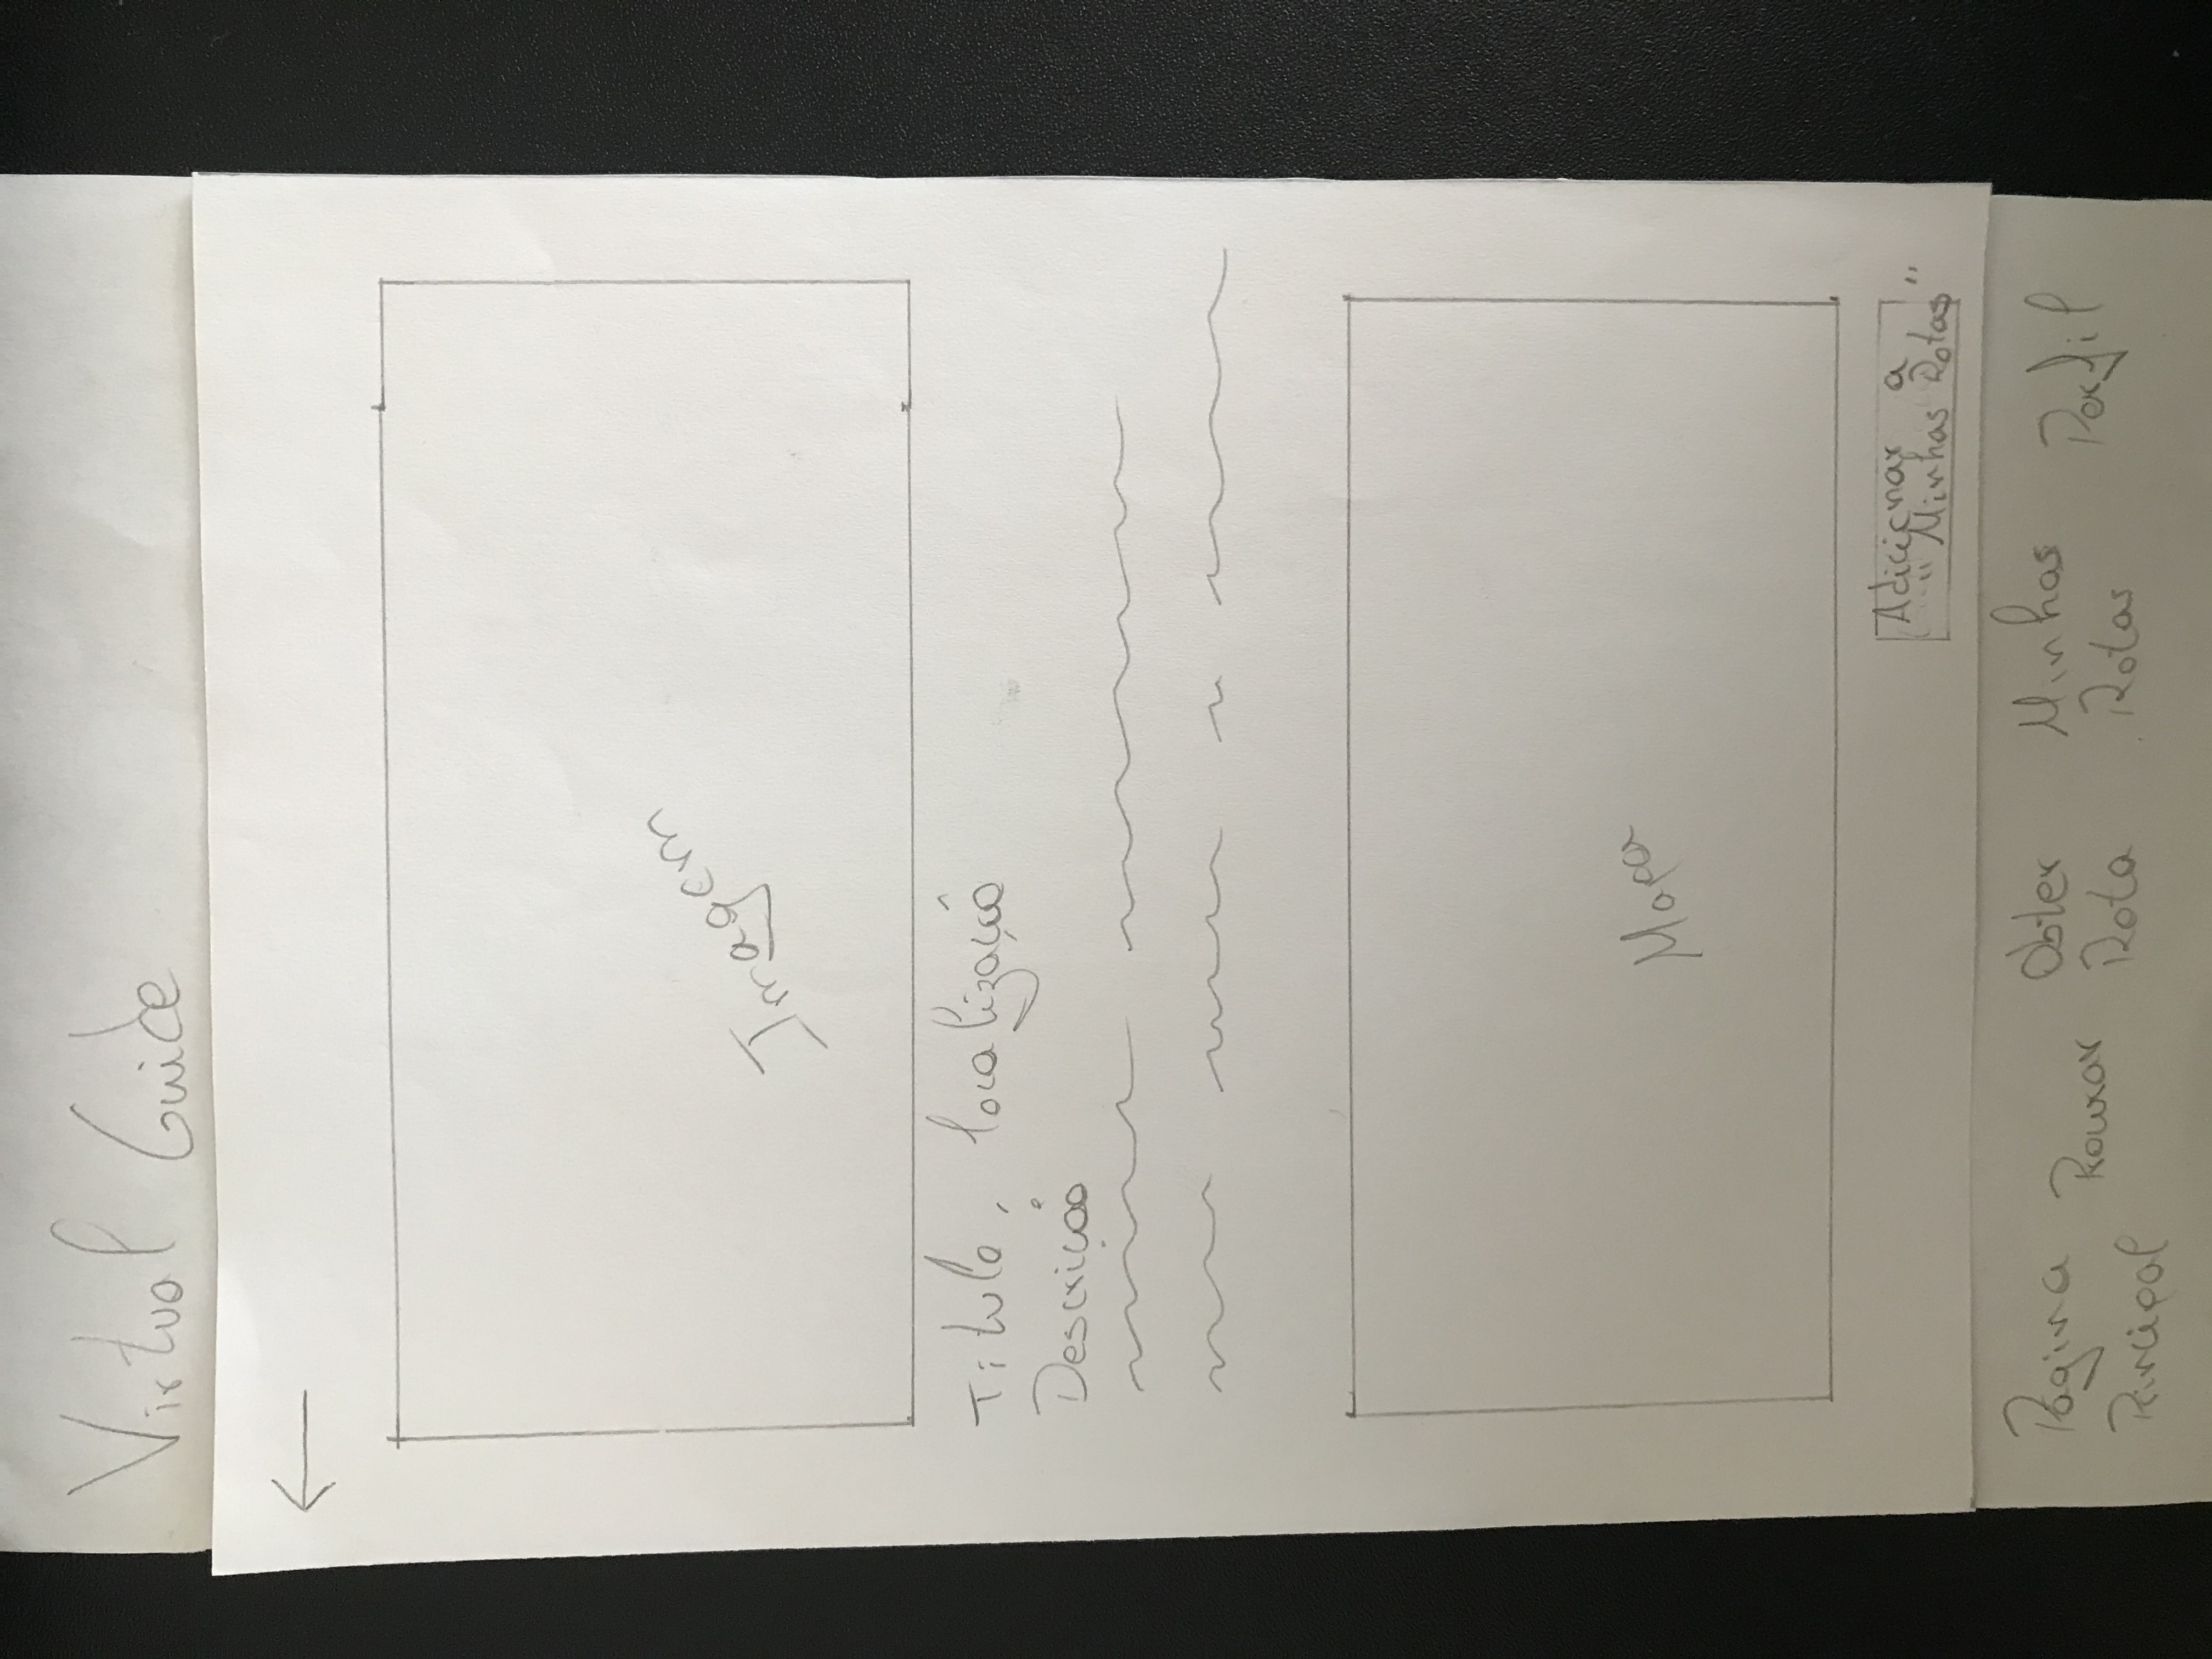 Virtual Guide
Imagem
Título, localização
Descrição
Mapa
Adicionar a
"Minhas Rotas"
Página Principal
Procurar
Obter Rota
Minhas Rotas
Perfil